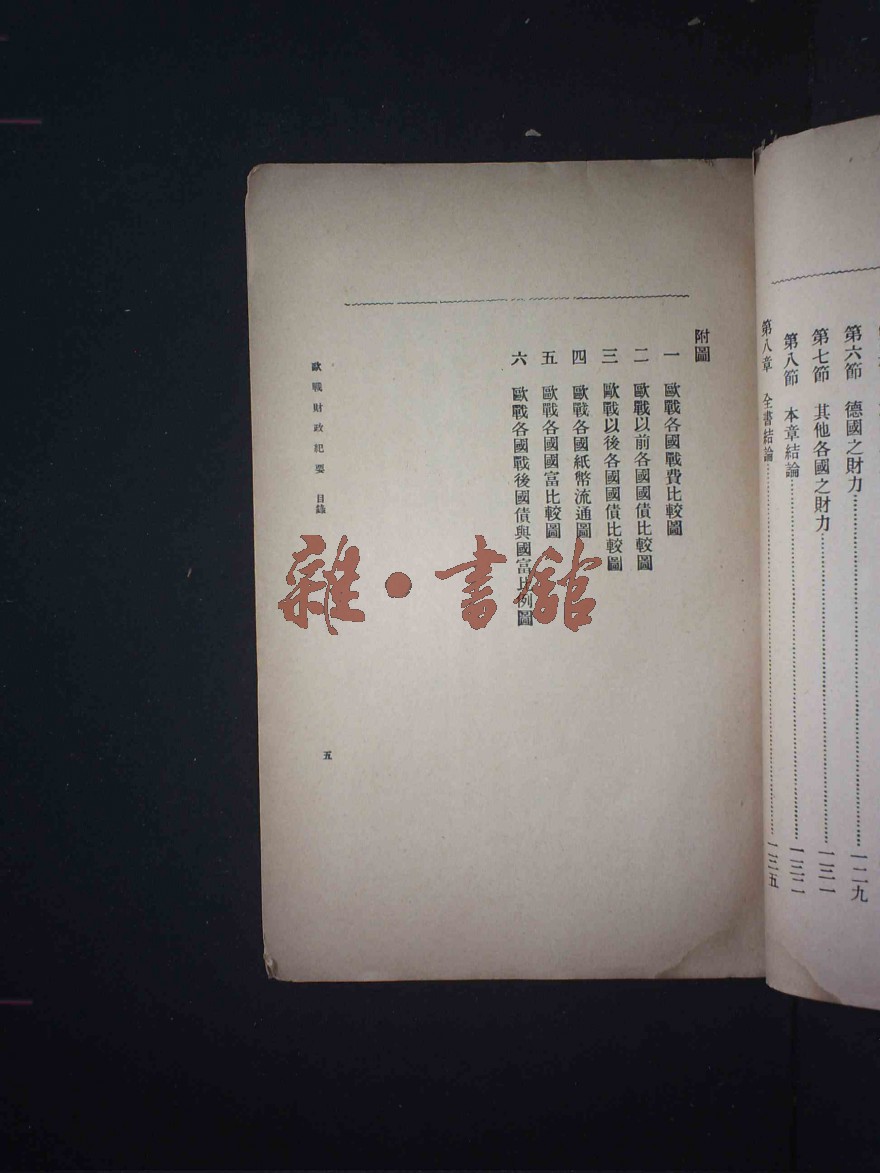 第六節　德國之財力……一二九
第七節　其他各國之財力……一三一
第八節　本章結論……一三二
第八章　全書結論……一三五
附圖
一　歐戰各國戰費比較圖
二　歐戰以前各國國債比較圖
三　歐戰以後各國國債比較圖
四　歐戰各國紙幣流通圖
五　歐戰各國國富比較圖
六　歐戰各國戰後國債與國富比例圖
歐戰財政紀要　目錄
五
雜·書館